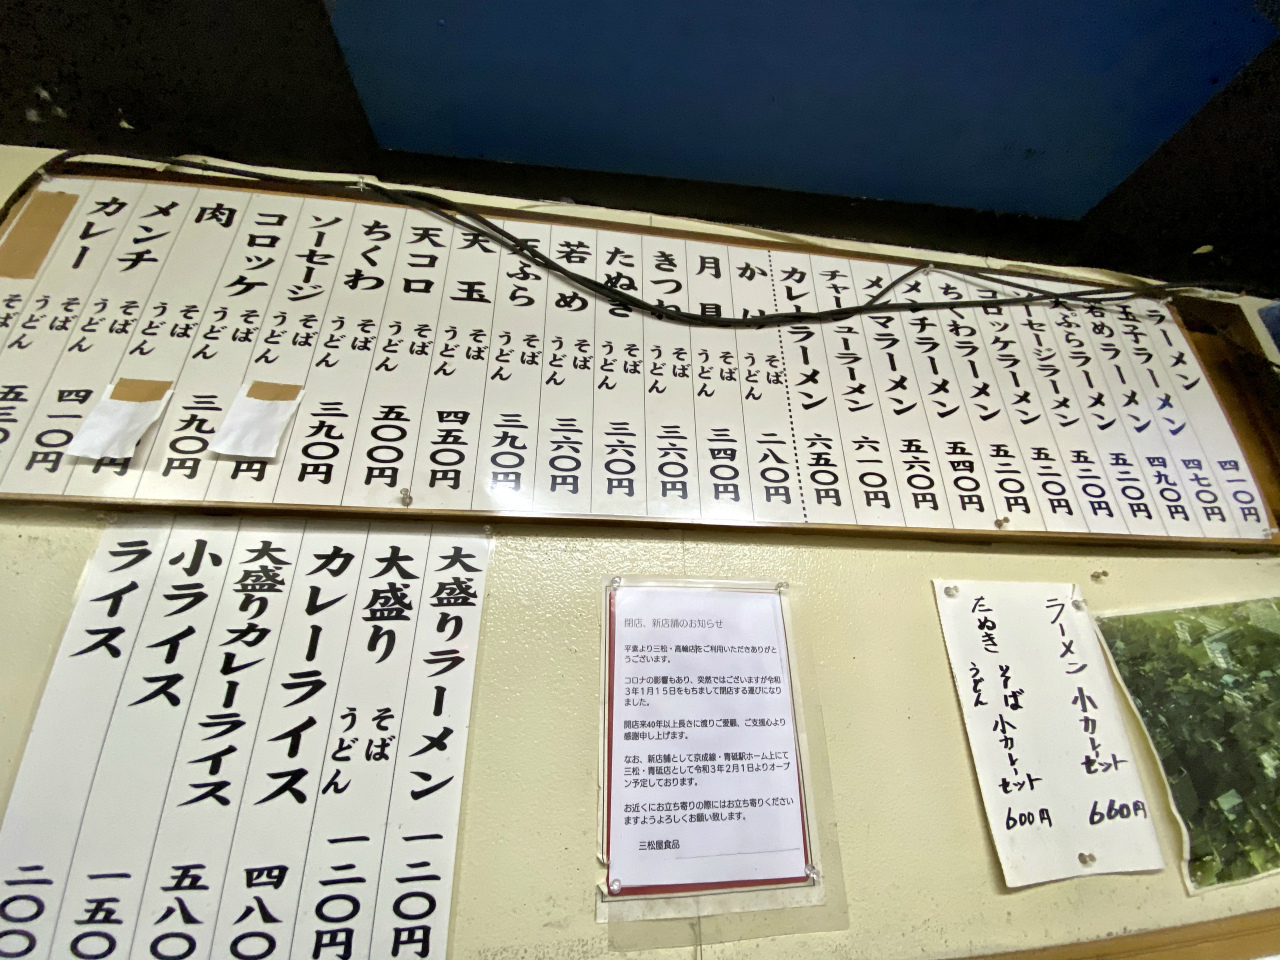 ラーメン 四一〇円
玉子ラーメン 四七〇円
若めラーメン 四九〇円
天ぷらラーメン 五二〇円
ソーセージラーメン 五二〇円
コロッケラーメン 五二〇円
ちくわラーメン 五二〇円
メンチラーメン 五四〇円
メンマラーメン 五六〇円
チャーシューラーメン 六一〇円
カレーラーメン 六五〇円
かけ そば うどん 二八〇円
月見 そば うどん 三四〇円
きつね そば うどん 三六〇円
たぬき そば うどん 三六〇円
若め そば うどん 三六〇円
天ぷら そば うどん 三九〇円
天玉 そば うどん 四五〇円
天コロ そば うどん 五〇〇円
ちくわ そば うどん 三九〇円
ソーセージ そば うどん
コロッケ そば うどん 三九〇円
肉 そば うどん 円
メンチ そば うどん 四一〇円
カレー そば うどん 五三〇
そば
大盛りラーメン 一二〇円
大盛り そば うどん 一二〇円
カレーライス 四八〇
大盛りカレーライス 五八〇
小ライス 一五〇
ライス 二〇〇
閉店、新店舗のお知らせ
平素より三松・高輪店をご利用いただきありがと
うございます。
コロナの影響もあり、突然ではございますが令和
3年1月15日をもちまして閉店する運びになり
ました。
開店来40年以上長きに渡りご愛顧、ご支援心より
感謝申し上げます。
なお、新店舗として京成線・青砥駅ホーム上にて
三松・青砥店として令和3年2月1日よりオープ
ン予定しております。
お近くにお立ち寄りの際にはお立ち寄りください
ますようよろしくお願い致します。
三松屋食品
ラーメン 小カレーセット 660円
たぬき そば うどん 小カレーセット 600円